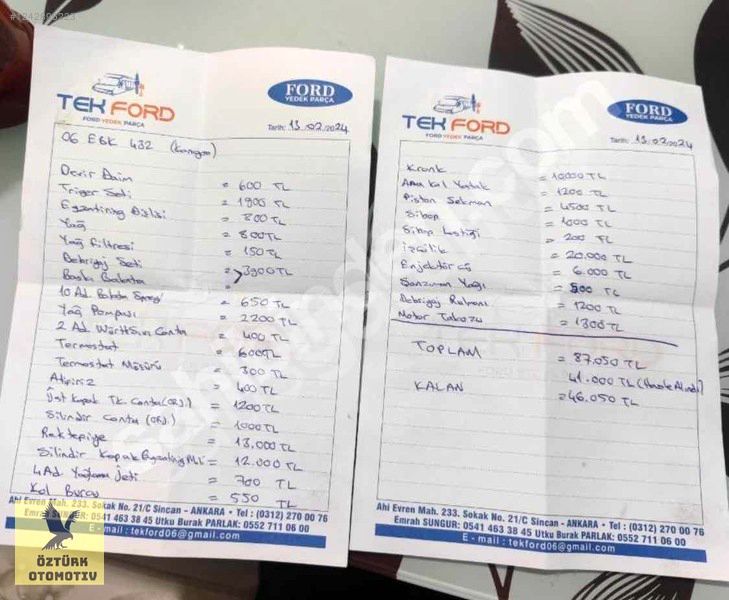 #1242896223
TEK FORD
FORD YEDEK PARÇA
FORD
YEDEK PARÇA
Tarih: 13.02.2024
06 EBK 432 (kangoo)
Devir Daim = 600 TL
Triger Seti = 1900 TL
Egzantirik Dişlisi = 800 TL
Yağ = 800 TL
Yağ Filtresi = 150 TL
Debriyaj Seti
Baskı Balata = 3900 TL
10 Ad. Balata Spreyi = 650 TL
Yağ Pompası = 2200 TL
2 Ad Würth Sıvı Conta = 400 TL
Termostat = 600 TL
Termostat Müşürü = 300 TL
Antifiriz = 400 TL
Üst Kapak Tk. Conta (ORJ.) = 1200 TL
Silindir Conta (ORJ.) = 1000 TL
Rektepiye = 13.000 TL
Silindir Kapak Egzantrik Mili = 12.000 TL
4 Ad. Yağlama Jeti = 700 TL
Kol Burcu = 550 TL
Ahi Evren Mah. 233. Sokak No. 21/C Sincan - ANKARA • Tel : (0312) 270 00 76
Emrah SUNGUR: 0541 463 38 45 Utku Burak PARLAK: 0552 711 06 00
E - mail : tekford06@gmail.com
TEK FORD
FORD YEDEK PARÇA
FORD
YEDEK PARÇA
Tarih: 13.02.2024
Krank = 10000 TL
Ana Kol Yatak = 1200 TL
Piston Sekman = 4500 TL
Sibop = 1000 TL
Sibop Lastiği = 200 TL
İşçilik = 20.000 TL
Enjektör cü = 6.000 TL
Şanzuman Yağı = 500 TL
Debriyaj Rulmanı = 1200 TL
Motor Takozu = 1300 TL
TOPLAM = 87.050 TL
41.000 TL (Havale Alındı)
KALAN = 46.050 TL
Ahi Evren Mah. 233. Sokak No. 21/C Sincan - ANKARA • Tel : (0312) 270 00 76
Emrah SUNGUR: 0541 463 38 45 Utku Burak PARLAK: 0552 711 06 00
E - mail : tekford06@gmail.com
sahibinden.com
ÖZTÜRK
OTOMOTİV